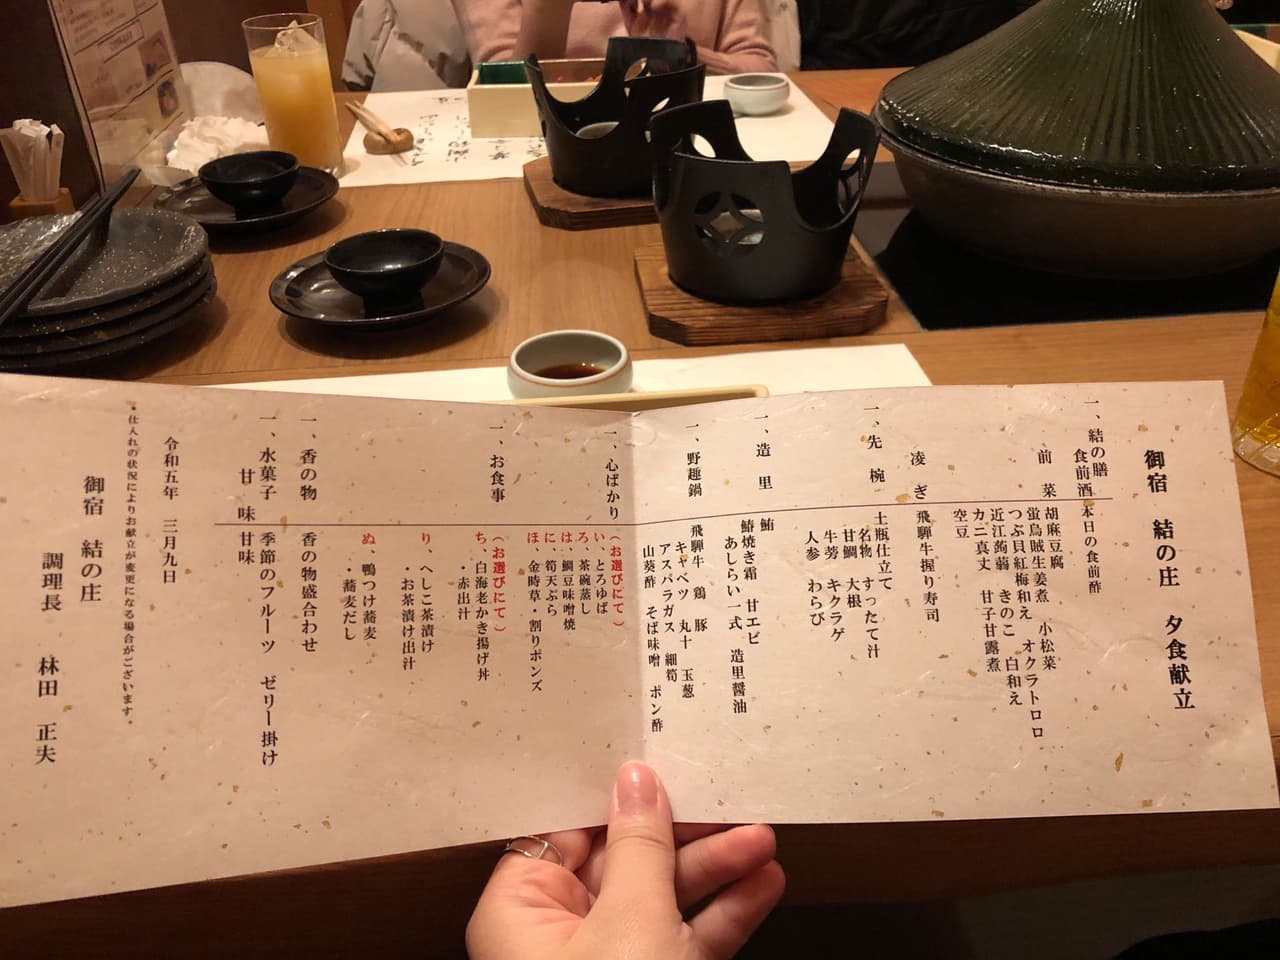 御宿 結の庄 夕食献立
一、結の膳
食前酒 本日の食前酢
前菜 胡麻豆腐
蛍烏賊生姜煮 小松菜
つぶ貝紅梅和え オクラトロロ
近江蒟蒻 きのこ 白和え
カニ真丈 甘子甘露煮
空豆
凌ぎ 飛騨牛握り寿司
一、先椀 土瓶仕立て
名物 すったて汁
甘鯛 大根
牛蒡 キクラゲ
人参 わらび
一、造里 鮪
鰆焼き霜 甘エビ
あしらい一式 造里醤油
一、野趣鍋 飛騨牛 鶏 豚
キャベツ 丸十 玉葱
アスパラガス 細筍
山葵酢 そば味噌 ポン酢
一、心ばかり (お選びにて)
い、とろゆば
ろ、茶碗蒸し
は、鯛豆味噌焼
に、筍天ぷら
ほ、金時草・割りポンズ
一、お食事 (お選びにて)
ち、白海老かき揚げ丼
・赤出汁
り、へしこ茶漬け
・お茶漬け出汁
ぬ、鴨つけ蕎麦
・蕎麦だし
一、香の物 香の物盛合わせ
一、水菓子 季節のフルーツ ゼリー掛け
甘味 甘味
*仕入れの状況によりお献立が変更になる場合がございます。
令和五年 三月九日
御宿 結の庄
調理長 林田 正夫